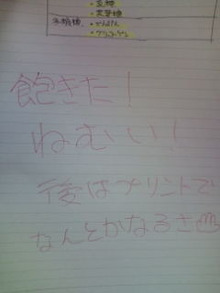 飽きた!
ねむいい!
後はプリントで
なんとかなるさ